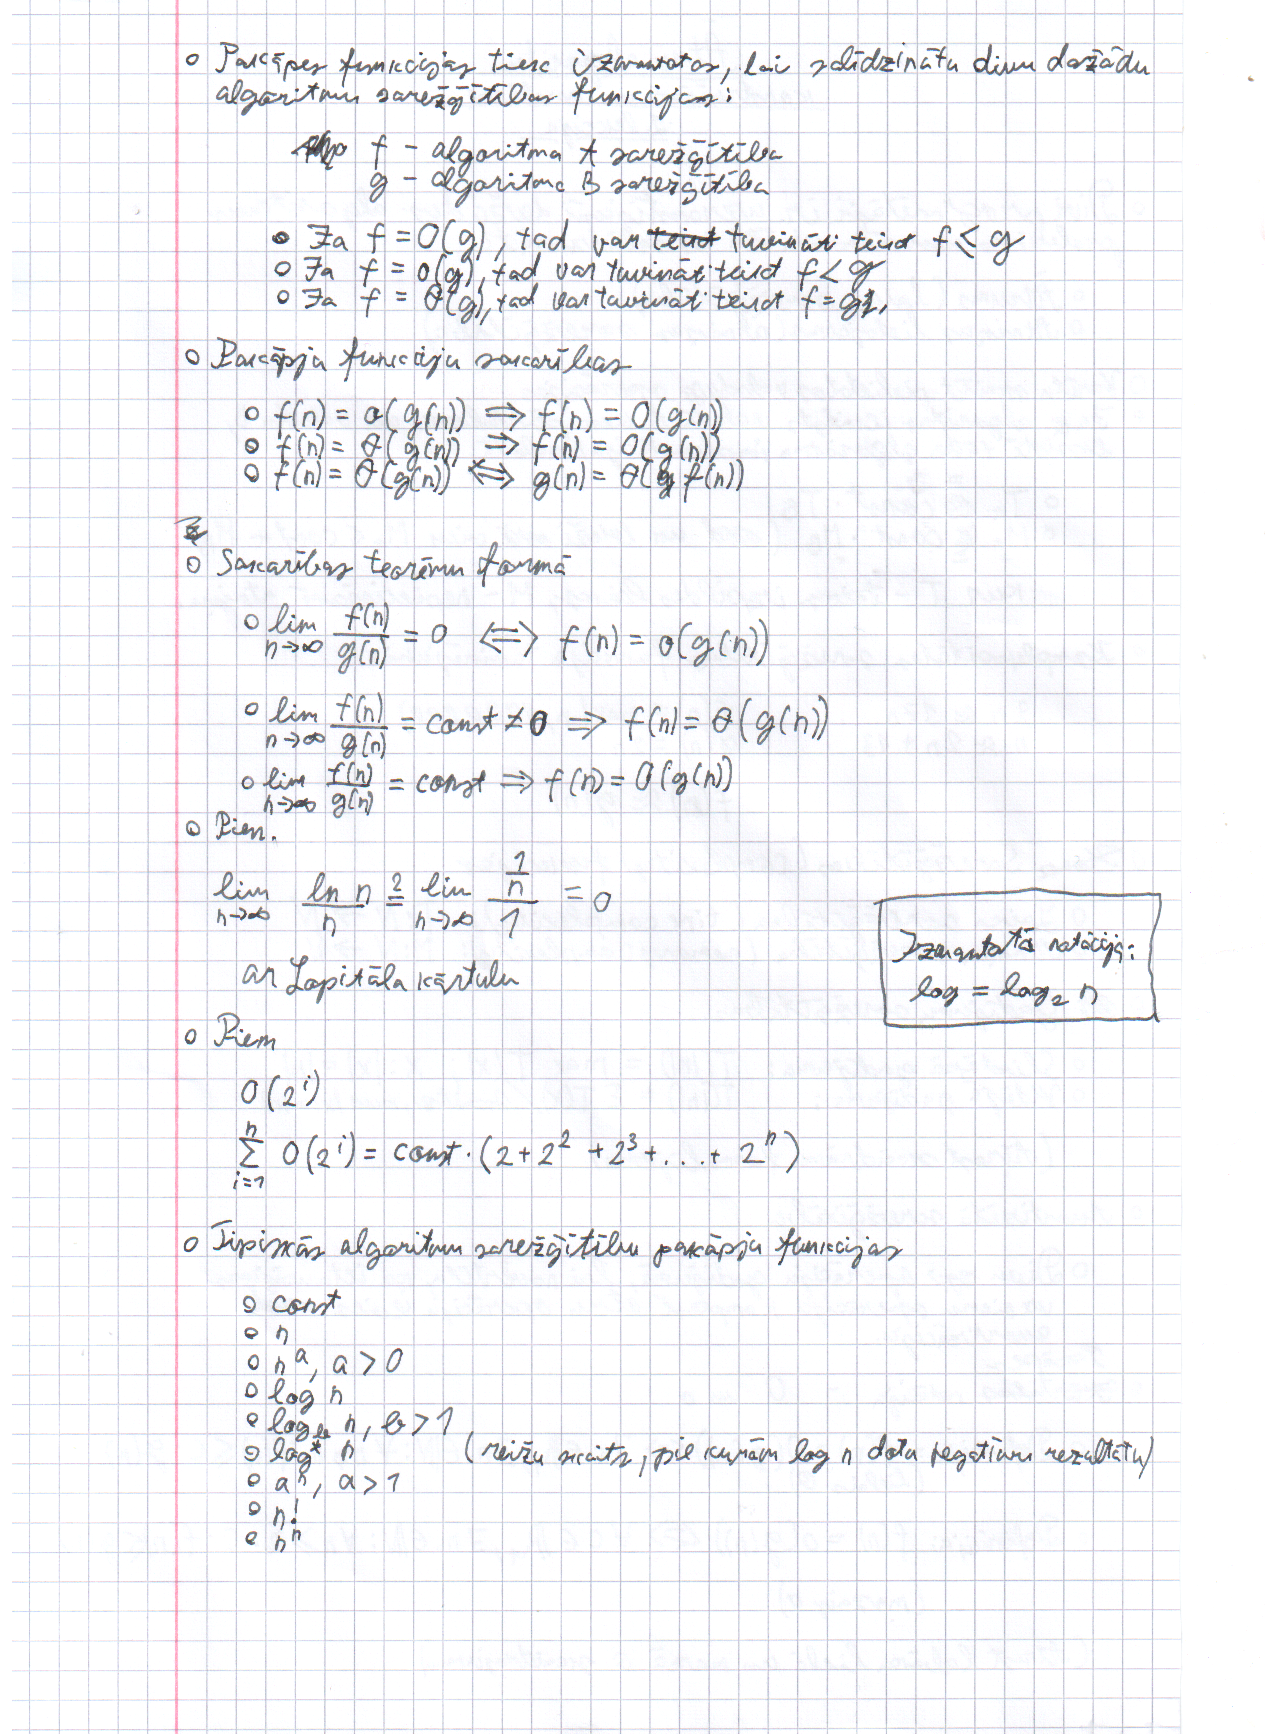 o Pakāpes funkcijas tiek izmantotas, lai salīdzinātu divu dažādu
algoritmu sarežģītības funkcijas:
f – algoritma A sarežģītība
g – algoritma B sarežģītība
o Ja f = O(g), tad var tuvināti teikt f ≤ g
o Ja f = o(g), tad var tuvināti teikt f < g
o Ja f = θ(g), tad var tuvināti teikt f = g
o Pakāpju funkciju sakarības
o f(n) = o(g(n)) ⇒ f(n) = O(g(n))
o f(n) = θ(g(n)) ⇒ f(n) = O(g(n))
o f(n) = θ(g(n)) ⇔ g(n) = θ(f(n))
o Sakarības teorēmu formā
o lim n→∞ f(n)/g(n) = 0 ⇔ f(n) = o(g(n))
o lim n→∞ f(n)/g(n) = const ≠ 0 ⇒ f(n) = θ(g(n))
o lim n→∞ f(n)/g(n) = const ⇒ f(n) = O(g(n))
o Piem.
lim n→∞ ln n / n ≟ lim n→∞ (1/n)/1 = 0
ar Lopitāla kārtulu
Izmantotā notācija:
log = log₂ n
o Piem
O(2^i)
∑ i=1 n O(2^i) = const · (2 + 2² + 2³ + ... + 2^n)
o Tipiskās algoritmu sarežģītību pakāpju funkcijas
o const
o n
o n^a, a > 0
o log n
o log_b n, b > 1
o log* n (reižu skaits, pie kurām log n dota negatīvu rezultātu)
o a^n, a > 1
o n!
o n^n